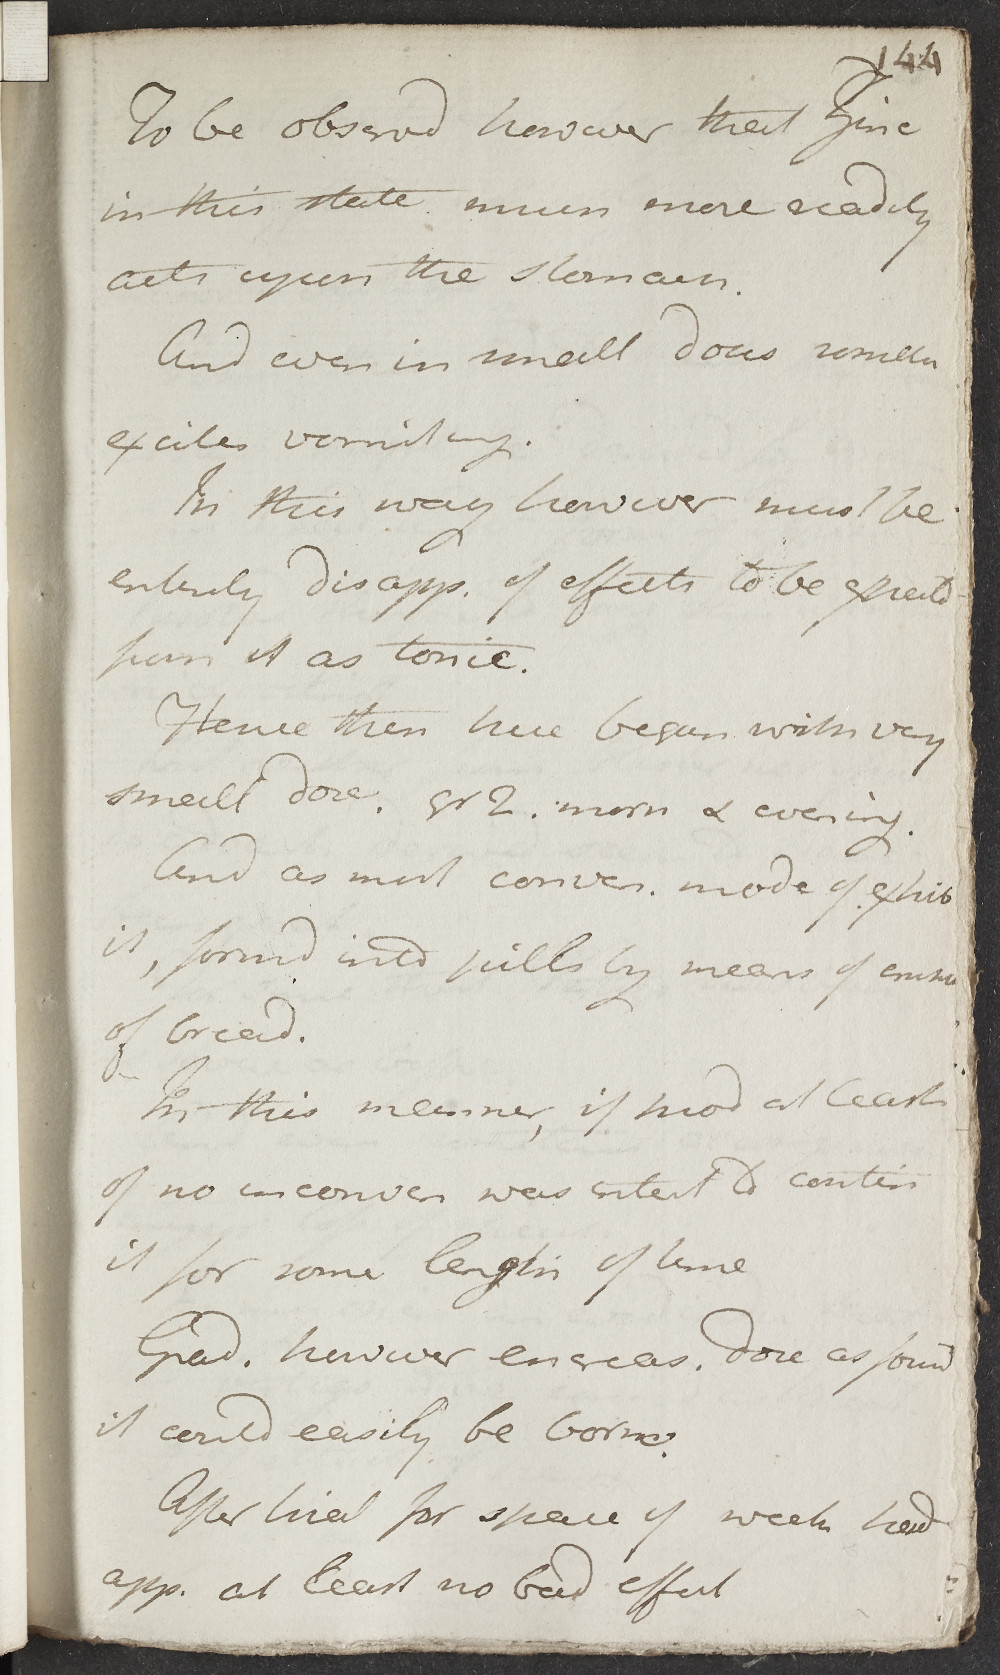 144
To be observd however that Zinc
in this state much more readily
acts upon the stomach.
And even in small doses somtim
excites vomiting.
In this way however must be
entirely disapp. of effects to be expectd
from it as tonic.
Hence then here began with very
small dose. gr 2. morn & evening.
And as most conven. mode of exhib
it, formd into pills by means of crumb
of bread.
In this manner, if prod at least
of no inconven was intent to contin
it for some length of time
Grad. however encreas. dose as found
it could easily be borne.
After trial for space of week had
app. at least no bad effect